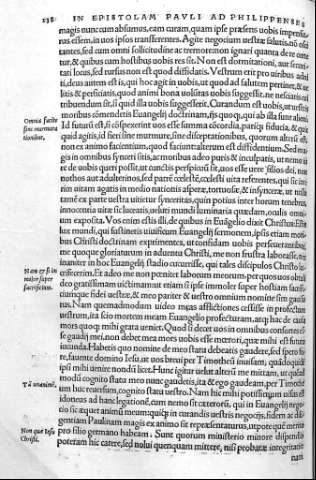 138 IN EPISTOLAM PAVLI AD PHILIPPENSES
magis nunc cum absumus, eam curam, quam ipse præsens uobis impensu-
rus essem, in uos ipsos transferens. Agite negocium uestræ salutis, nõ osci-
tantes, sed cum omni sollicitudine ac tremore, non ignari quanta de re cerite
tur, & quibus cum hostibus uobis res sit. Non est dormitationi, aut securi
tati locus, sed rursus non est quod diffidatis. Vestrum est pro uiribus adniti
ti, deus autem est is, qui hoc agit in uobis, ut quod ad salutem pertinet, & ue
litis & perficiatis, quod animi bona uoluntas uobis suggessit,
tribuendum sit, si quid illa uobis suggesserit. Curandum est uobis, ut uestris
moribus cõmendetis Euangelij doctrinam, ijs quoque, qui ab illa sunt alieni
Omnia facite
sine murmura
tionibus.
Id futurũ est, si cõspexerint uos esse summa cõcordia, pariq; fiducia, & quic
quid agitis, id facere sine murmure, sine disceptationibus, quorum alterũ est
non ex animo facientium, quod faciunt: alterum est diffidentium. Sed ma
gis in omnibus synceri sitis, ac moribus adeo puris & inculpatis, ut nemo
re de uobis queri possit, ut cunctis perspicuũ sit, uos esse uere filios dei, non
nothos aut adulterinos, sed patre cœleste, cœlesti uita referentes, qui si
rim uitam agatis in medio nationis asperæ, tortuosæ, & insynceræ, ut nulla
tamẽ ex parte uestra uitietur synceritas, quin potius inter horum tenebras
innocentia uitæ sic luceatis, ueluti mundi luminaria quædam, oculis omni-
um exposita. Vos enim estis illi, de quibus in Euãgelio dixit Christus: Estis
lux mundi, qui sustinetis uiuificum Euangelij sermonem, ipsis etiam mori
bus Christi doctrinam exprimentes, ut confidam uobis perseuerantibus,
me quoque gloriaturum in aduentu Christi, me non frustra laborasse, nec
inaniter in hoc Euangelij stadio cucurrisse, qui tales discipulos Christo lu-
Non & si im
molor super
sacrificium.
crifecerim. Et adeo me non pœnitet laborum meorum, per quos uos obtuli
deo gratissimam uictimam, ut etiam si ipse immoler super hostiam sacrifi-
ciumque fidei uestræ, & meo pariter & uestro omnium nomine sim gauisu
rus. Nam quemadmodum uideo meas afflictiones cessisse in profectum
uestrum, ita scio mortem meam Euangelio profecturam, atq; hac de causa
mors quoq; mihi grata ueniet. Quod si decet uos in omnibus consortes es-
se gaudij mei, non debet mea mors uobis esse mœrori, quæ mihi est futura
iucunda. Habetis quo nomine de mea statu debeatis gaudere, sed spero fo-
re, fauente domino Iesu, ut uos breui per Timotheũ inuisam, quãdoquidẽ
ipsi mihi uenire nondũ licet. Hunc igitur uelut alterũ me mittam, ut quẽad
Tã unanimẽ.
modũ cognito statu meo nunc gaudetis, ita & ego gaudeam, per Timothe
um huc reuersum, cognito statu uestro. Nam hic mihi potissimum uisus est
idoneus ad hanc legationẽ, cum nemo sit cæterorũ, qui in Euangelij nego-
cio sic æquet animũ meum: quicq; in curandis uestris negocijs, fidem ac dili
gentiam Paulinam magis ex animo sit repræsentaturus, utpote quẽ merito
Non quæ Iesu
Christi.
pro filio germano habeam. Sunt quorum ministerio minore dispendio
poteram hic carere, sed nolui quenquam mittere, nisi probatæ integritatis.
nam